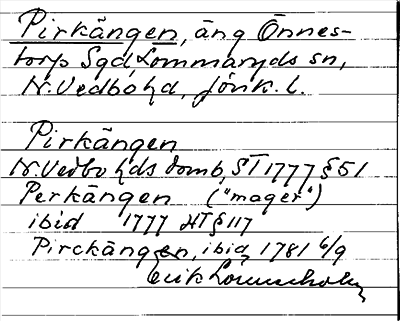 Pirkängen, äng Önnes-
torp Sgd, Lommaryds sn,
N. Vedbo hd, Jönk. l.
Pirkängen
N. Vedbo hds domb, ST 1777 § 51
Perkängen ("mager")
ibid 1777 HT § 117
Pirckängen, ibid, 1781 6/9
Erik